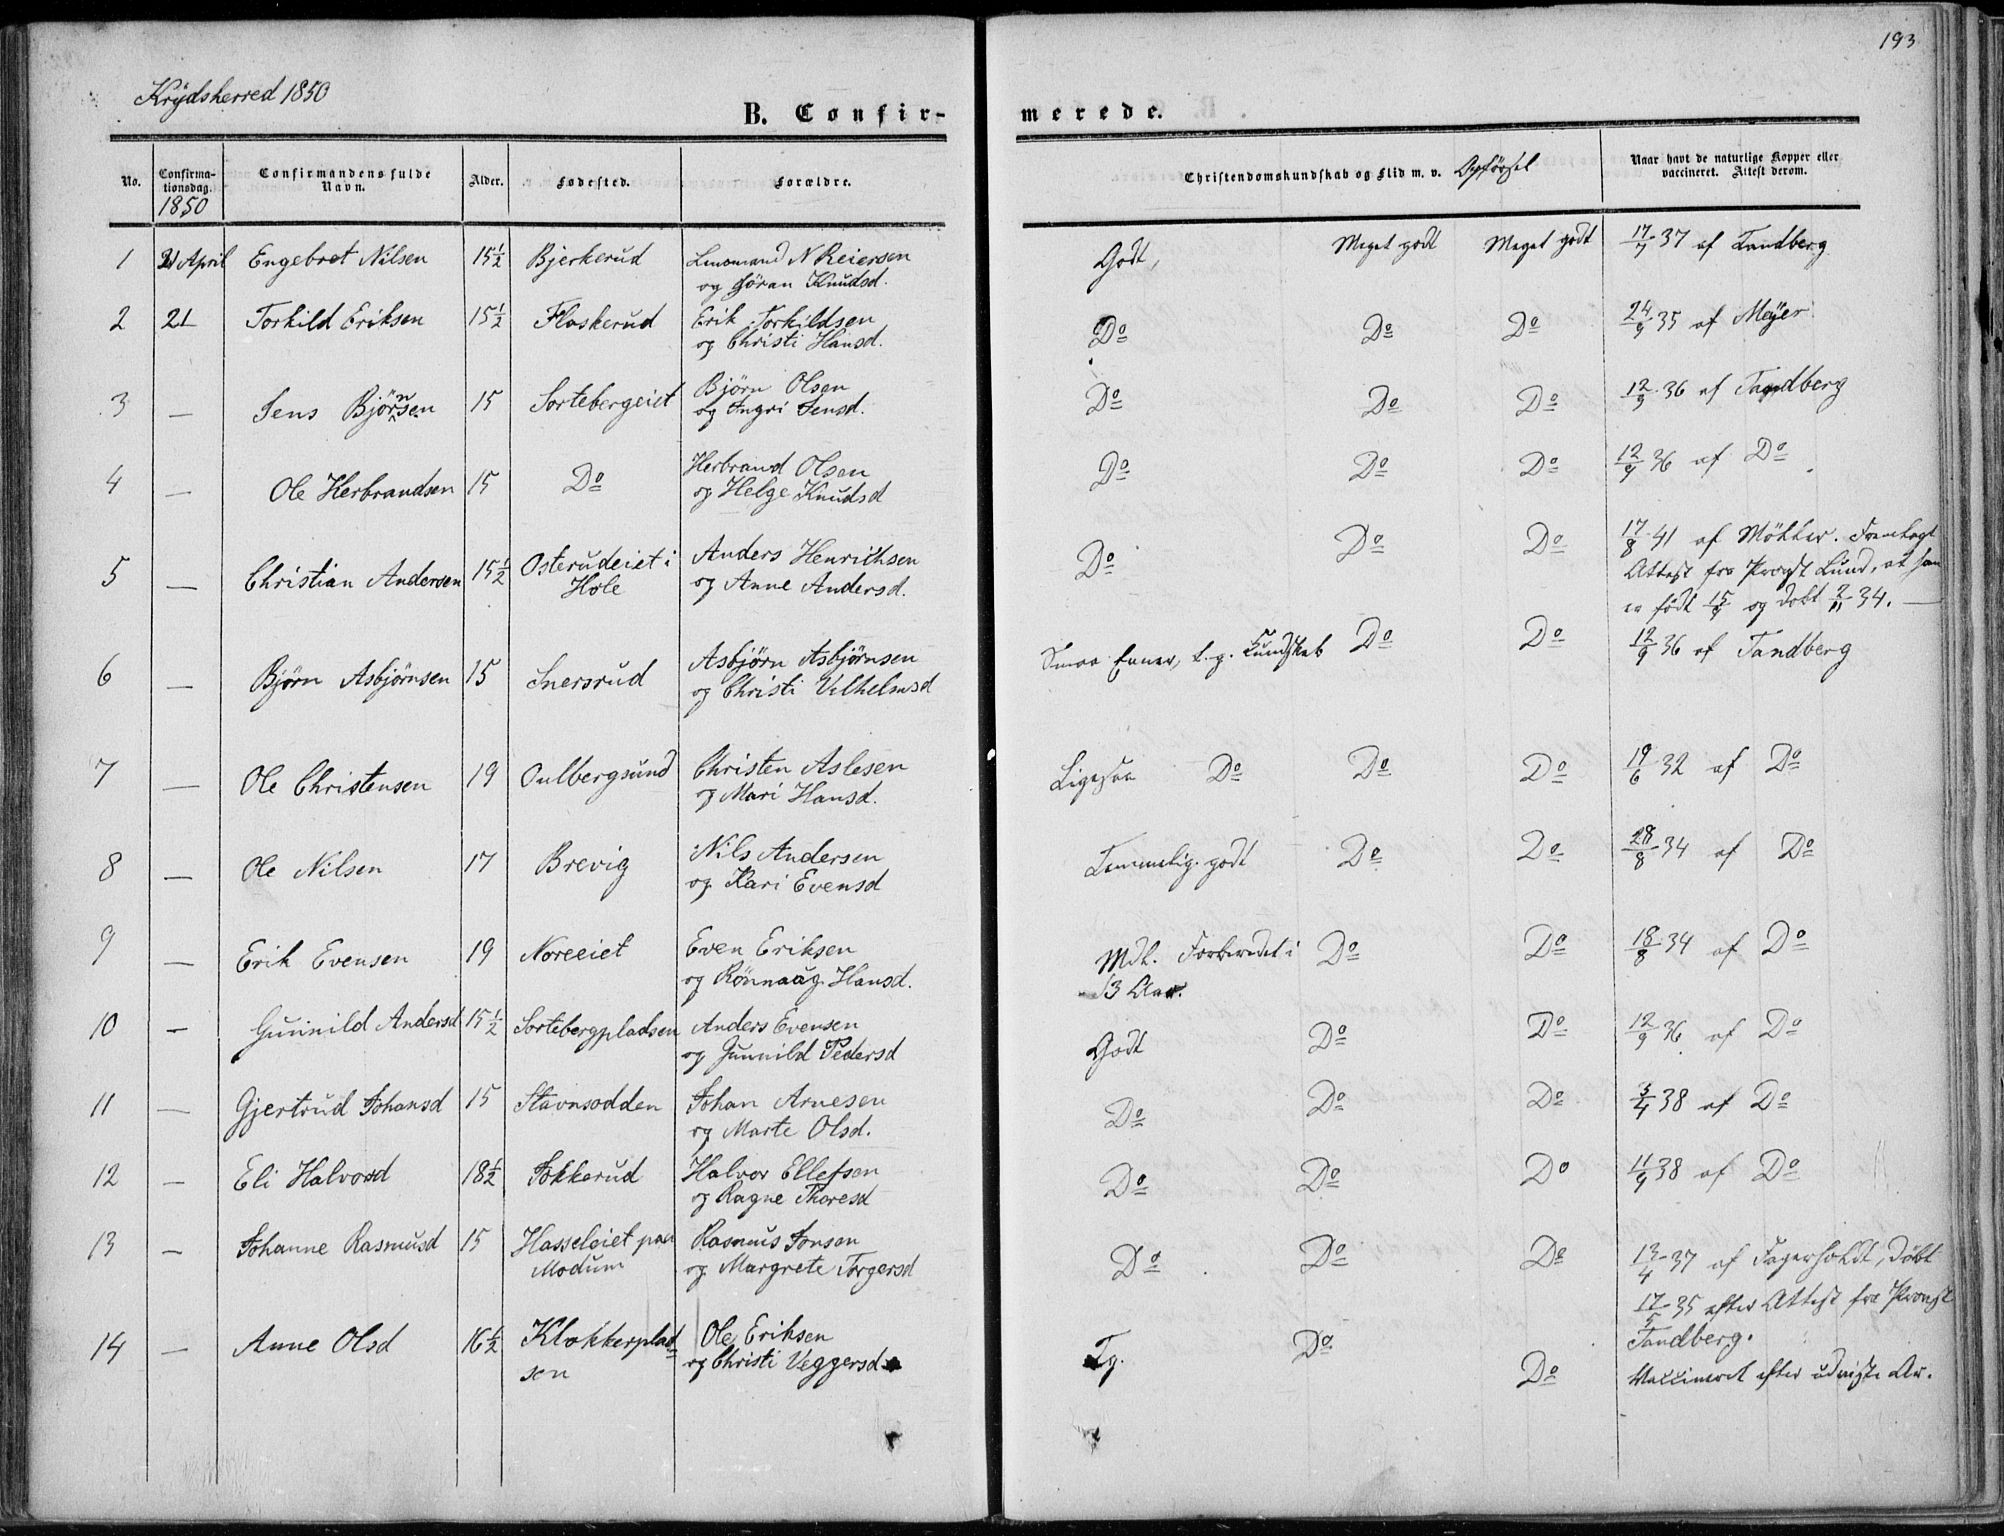 193
Krÿdsherred 1850
B. Confir-
merede.
No.
Confirma-
tionsdag.
1850
Confirmandens fulde
Navn.
Alder.
Fødested.
Forældre.
Christendomskundskab og Flid m. v. Opförsel
Naar havt de naturlige Kopper eller
vaccineret. Attest derom.
1 21 April Engebret Nilsen 15½ Bjerkerud Lensmand N Reiersen Godt, Meget godt Meget godt 17/7 37 af Tandberg
og Jöran Knudsd.
2 21 Torkild Eriksen 15½ Flaskerud Erik Torkildsen Do Do Do 24/9 35 af Meÿer
og Christi Hansd.
3 — Jens Björnsen 15 Sortebergeiet Björn Olsen Do Do Do 12/9 36 af Tandberg
og Ingri Jensd.
4 — Ole Herbrandsen 15 Do Herbrand Olsen Do Do Do 12/9 36 af Do
og Helge Knudsd
5 — Christian Andersen 15½ Osterudeiet i Anders Henrichsen Do Do Do 17/8 41 af Fremlagt
Hole og Anne Andersd. Attest fra Provst Lund, at han
er födt 15/9 og döbt 2/11 34. —
6 — Björn Asbjörnsen 15 Snersrud Asbjörn Asbjörnsen Smaa Evner, t. g. Kundskab Do Do 12/9 36 af Tandberg
og Christi Vilhelmsd
7 — Ole Christensen 19 Gulbergsund Christen Aslesen Ligesaa Do Do Do 19/6 32 af Do
og Mari Hansd.
8 — Ole Nilsen 17 Brevig Nils Andersen Temmelig godt Do Do 28/8 34 af Do
og Kari Evensd
9 — Erik Evensen 19 Noreeiet Even Eriksen Mdl. Forberedet i Do Do 18/8 34 af Do
og Rönnaug Hansd. 3 Aar.
10 — Gunnild Andersd 15½ Sortebergpladsen Anders Evensen Godt Do Do 12/9 36 af Do
og Gunnild Pedersd
11 — Gjertrud Johansd 15 Stavnsodden Johan Arnesen Do Do Do 3/4 38 af Do
og Marte Olsd.
12 — Eli Halvorsd 18½ Fokkerud Halvor Ellefsen Do Do Do 11/9 38 af Do
og Ragne Thoresd
13 — Johanne Rasmusd 15 Hasseleiet paa Rasmus Jonsen Do Do Do 13/4 37 af Fagerholdt, döbt
Modum og Margrete Torgersd 17/5 35 efter Attest fra Provst
Tandberg.
14 — Anne Olsd 16½ Klokkerplad- Ole Eriksen Tg. Do Do Vaccineret efter udviste Ar.
sen og Christi Veggersd